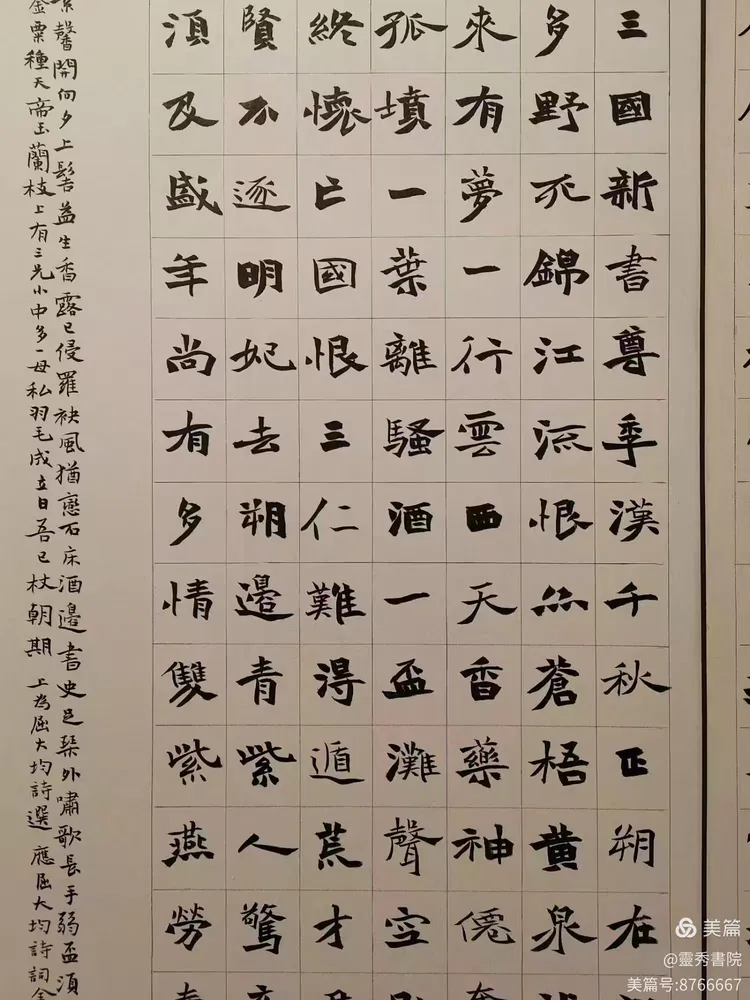 三國新書尊季漢千秋正朔在
多野死錦江流恨㸃蒼梧黄泉
來有夢一行雲西天香藥神僊
孤墳一葉離騷酒一盃灘聲空
終懷亡國恨三仁難得遁荒才
賢不逐明妃去朔邊青紫人驚
須及盛年尚有多情雙紫燕勞
馨開向夕上髻益生香露已侵羅袂風猶戀石床酒邊書史足琹外嘯歌長手弱盃須
金粟種天帝玉蘭枝上有三光小中多一母私羽毛成立日吾已杖朝期 上為屈大均詩選 應屈大均詩詞全
美篇
@靈秀書院
美篇号:8766667